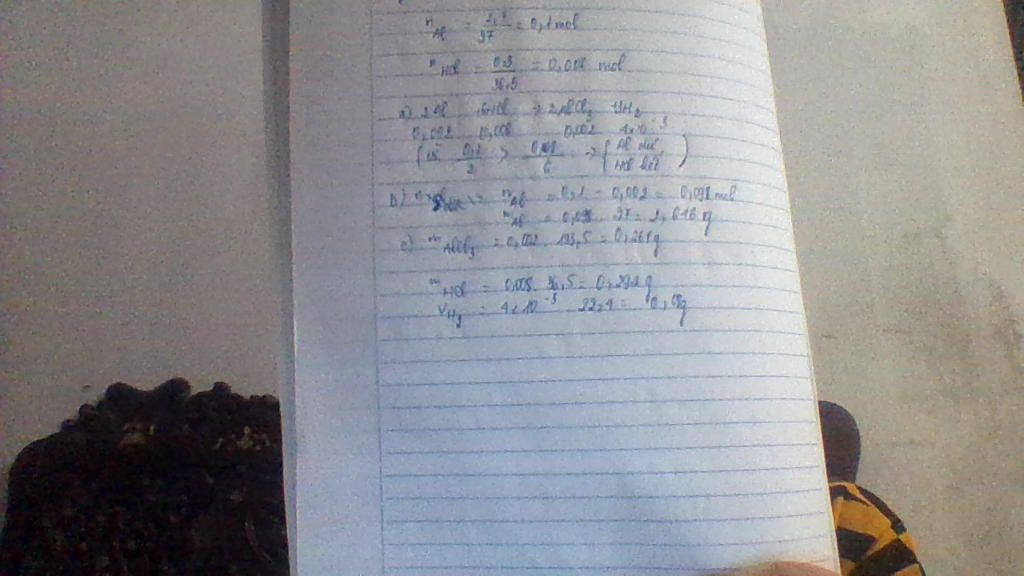 n Al = 2,7 / 27 = 0,1 mol
n HCl = 0,3 / 36,5 = 0,008 mol
a) 2Al 6HCl → 2AlCl3 3H2
0,002 0,008 0,002 4x10^-3
( 0,1 / 2 > 0,008 / 6 → { Al dư, HCl hết )
b) n Al = 0,1 - 0,002 = 0,098 mol
m Al = 0,098 . 27 = 2,646 g
c) m AlCl3 = 0,002 . 133,5 = 0,267g
m HCl = 0,008. 36,5 = 0,292 g
V H2 = 4x10^-3 22,4 = 0,08g